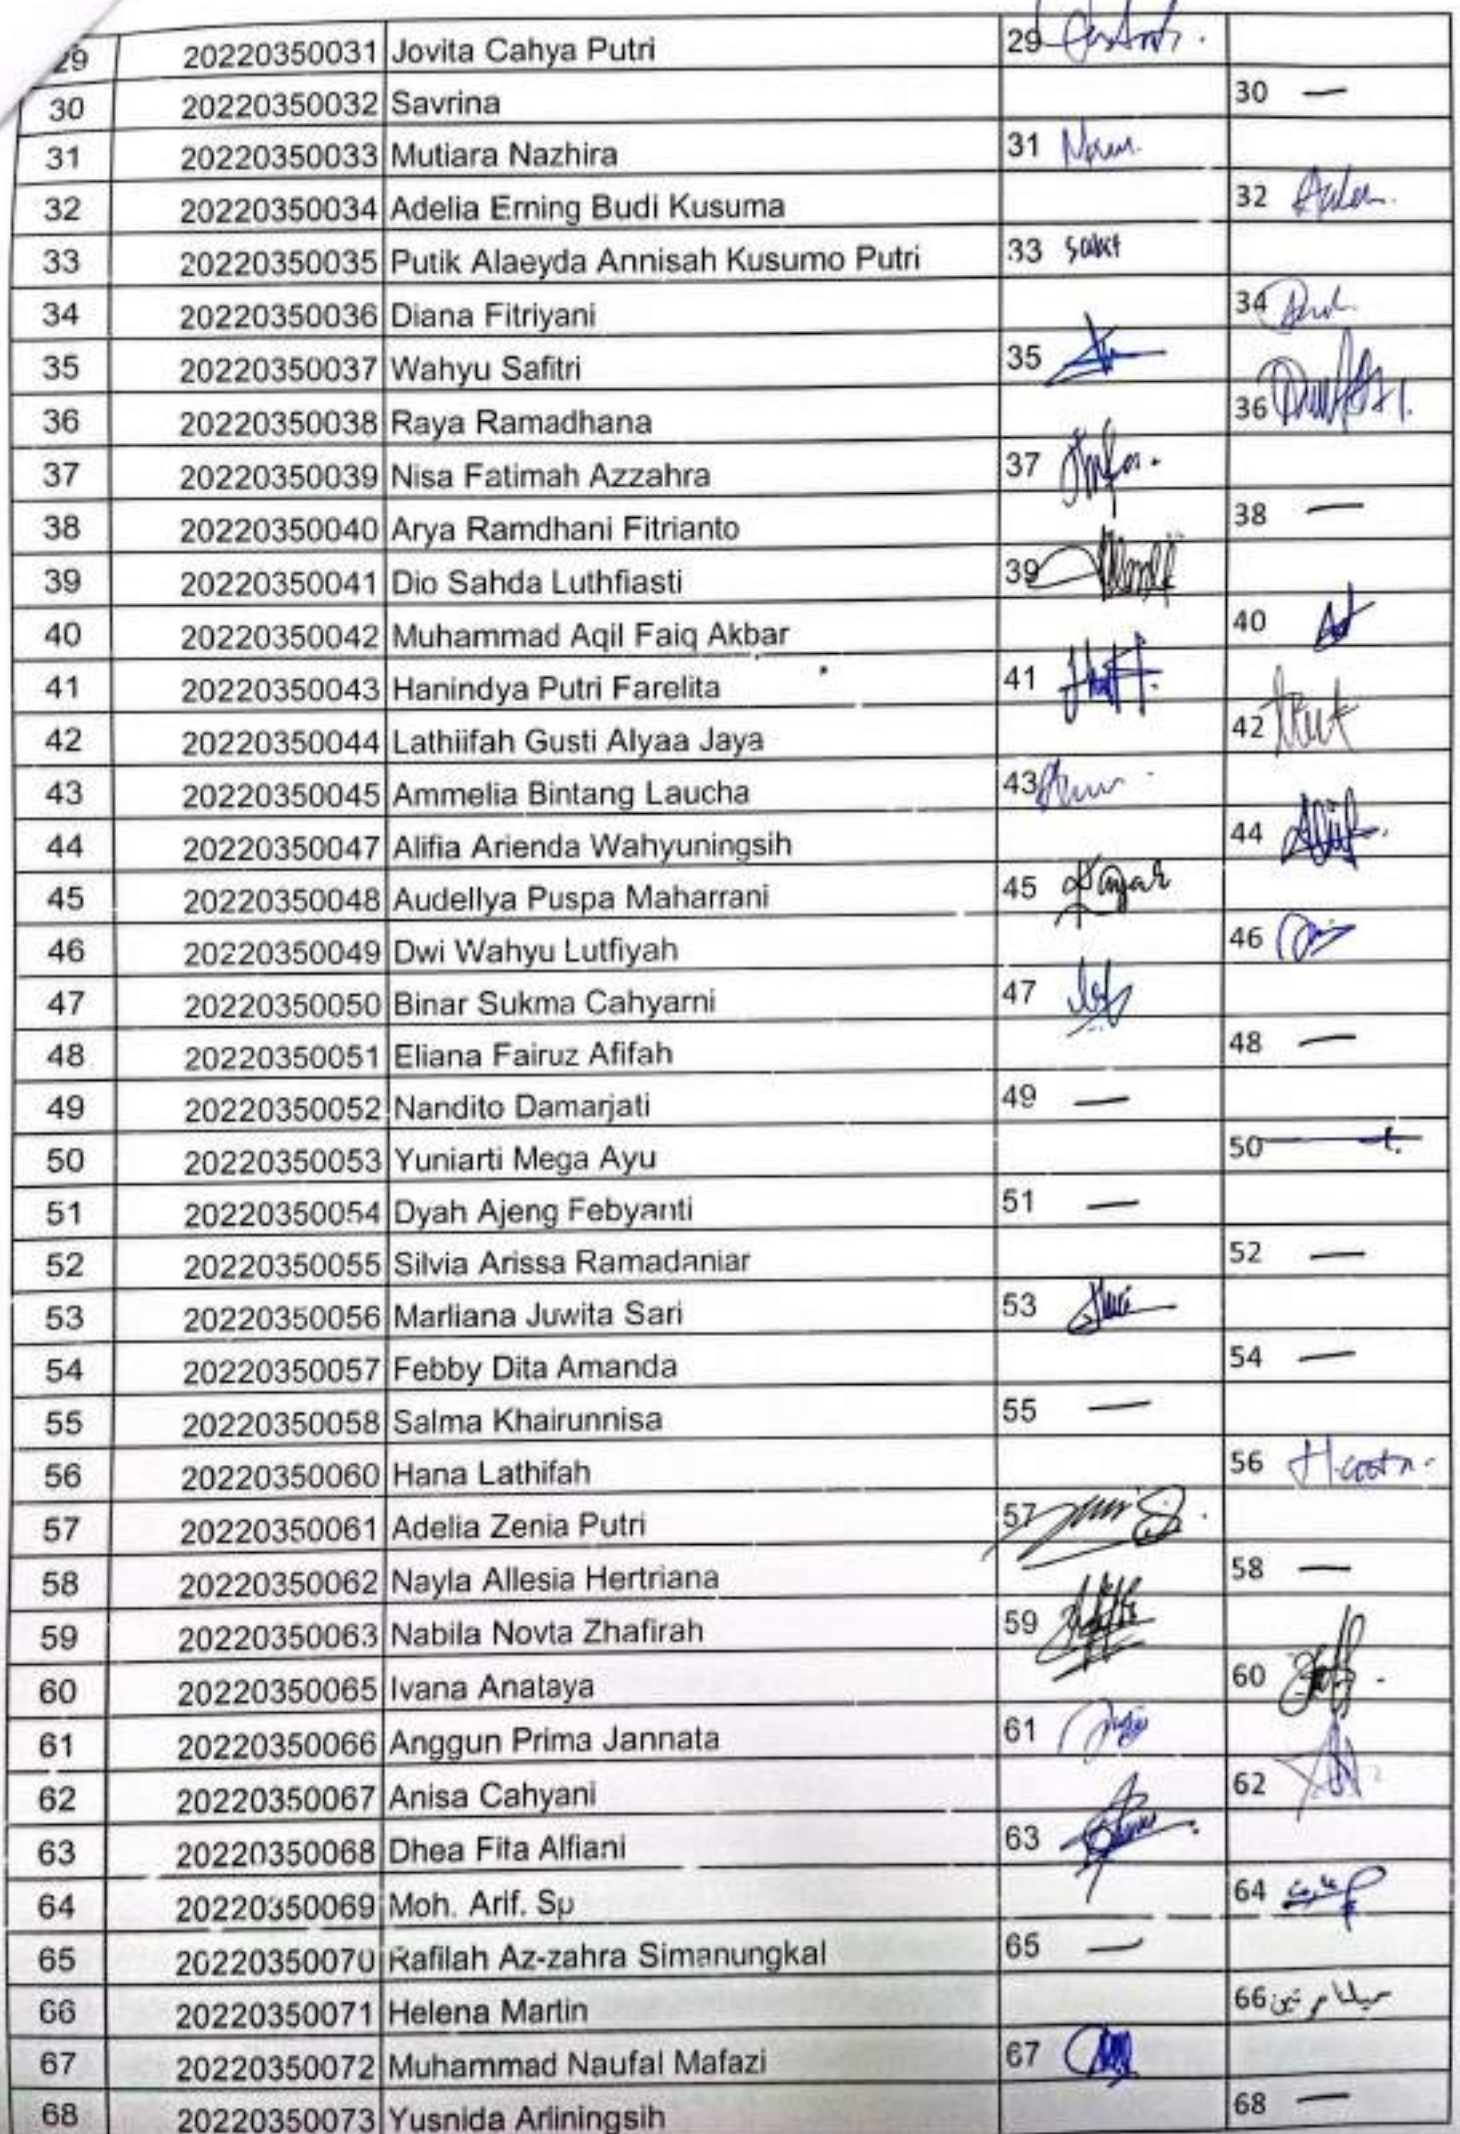 29 20220350031 Jovita Cahya Putri 29
30 20220350032 Savrina 30 —
31 20220350033 Mutiara Nazhira 31
32 20220350034 Adelia Erning Budi Kusuma 32
33 20220350035 Putik Alaeyda Annisah Kusumo Putri 33 sakit
34 20220350036 Diana Fitriyani 34
35 20220350037 Wahyu Safitri 35
36 20220350038 Raya Ramadhana 36
37 20220350039 Nisa Fatimah Azzahra 37
38 20220350040 Arya Ramdhani Fitrianto 38 —
39 20220350041 Dio Sahda Luthfiasti 39
40 20220350042 Muhammad Aqil Faiq Akbar 40
41 20220350043 Hanindya Putri Farelita 41
42 20220350044 Lathiifah Gusti Alyaa Jaya 42
43 20220350045 Ammelia Bintang Laucha 43
44 20220350047 Alifia Arienda Wahyuningsih 44
45 20220350048 Audellya Puspa Maharrani 45
46 20220350049 Dwi Wahyu Lutfiyah 46
47 20220350050 Binar Sukma Cahyarni 47
48 20220350051 Eliana Fairuz Afifah 48 —
49 20220350052 Nandito Damarjati 49 —
50 20220350053 Yuniarti Mega Ayu 50
51 20220350054 Dyah Ajeng Febyanti 51 —
52 20220350055 Silvia Arissa Ramadaniar 52 —
53 20220350056 Marliana Juwita Sari 53
54 20220350057 Febby Dita Amanda 54 —
55 20220350058 Salma Khairunnisa 55 —
56 20220350060 Hana Lathifah 56
57 20220350061 Adelia Zenia Putri 57
58 20220350062 Nayla Allesia Hertriana 58 —
59 20220350063 Nabila Novta Zhafirah 59
60 20220350065 Ivana Anataya 60
61 20220350066 Anggun Prima Jannata 61
62 20220350067 Anisa Cahyani 62
63 20220350068 Dhea Fita Alfiani 63
64 20220350069 Moh. Arif. Sp 64
65 20220350070 Rafilah Az-zahra Simanungkal 65 —
66 20220350071 Helena Martin 66
67 20220350072 Muhammad Naufal Mafazi 67
68 20220350073 Yusnida Arliningsih 68 —